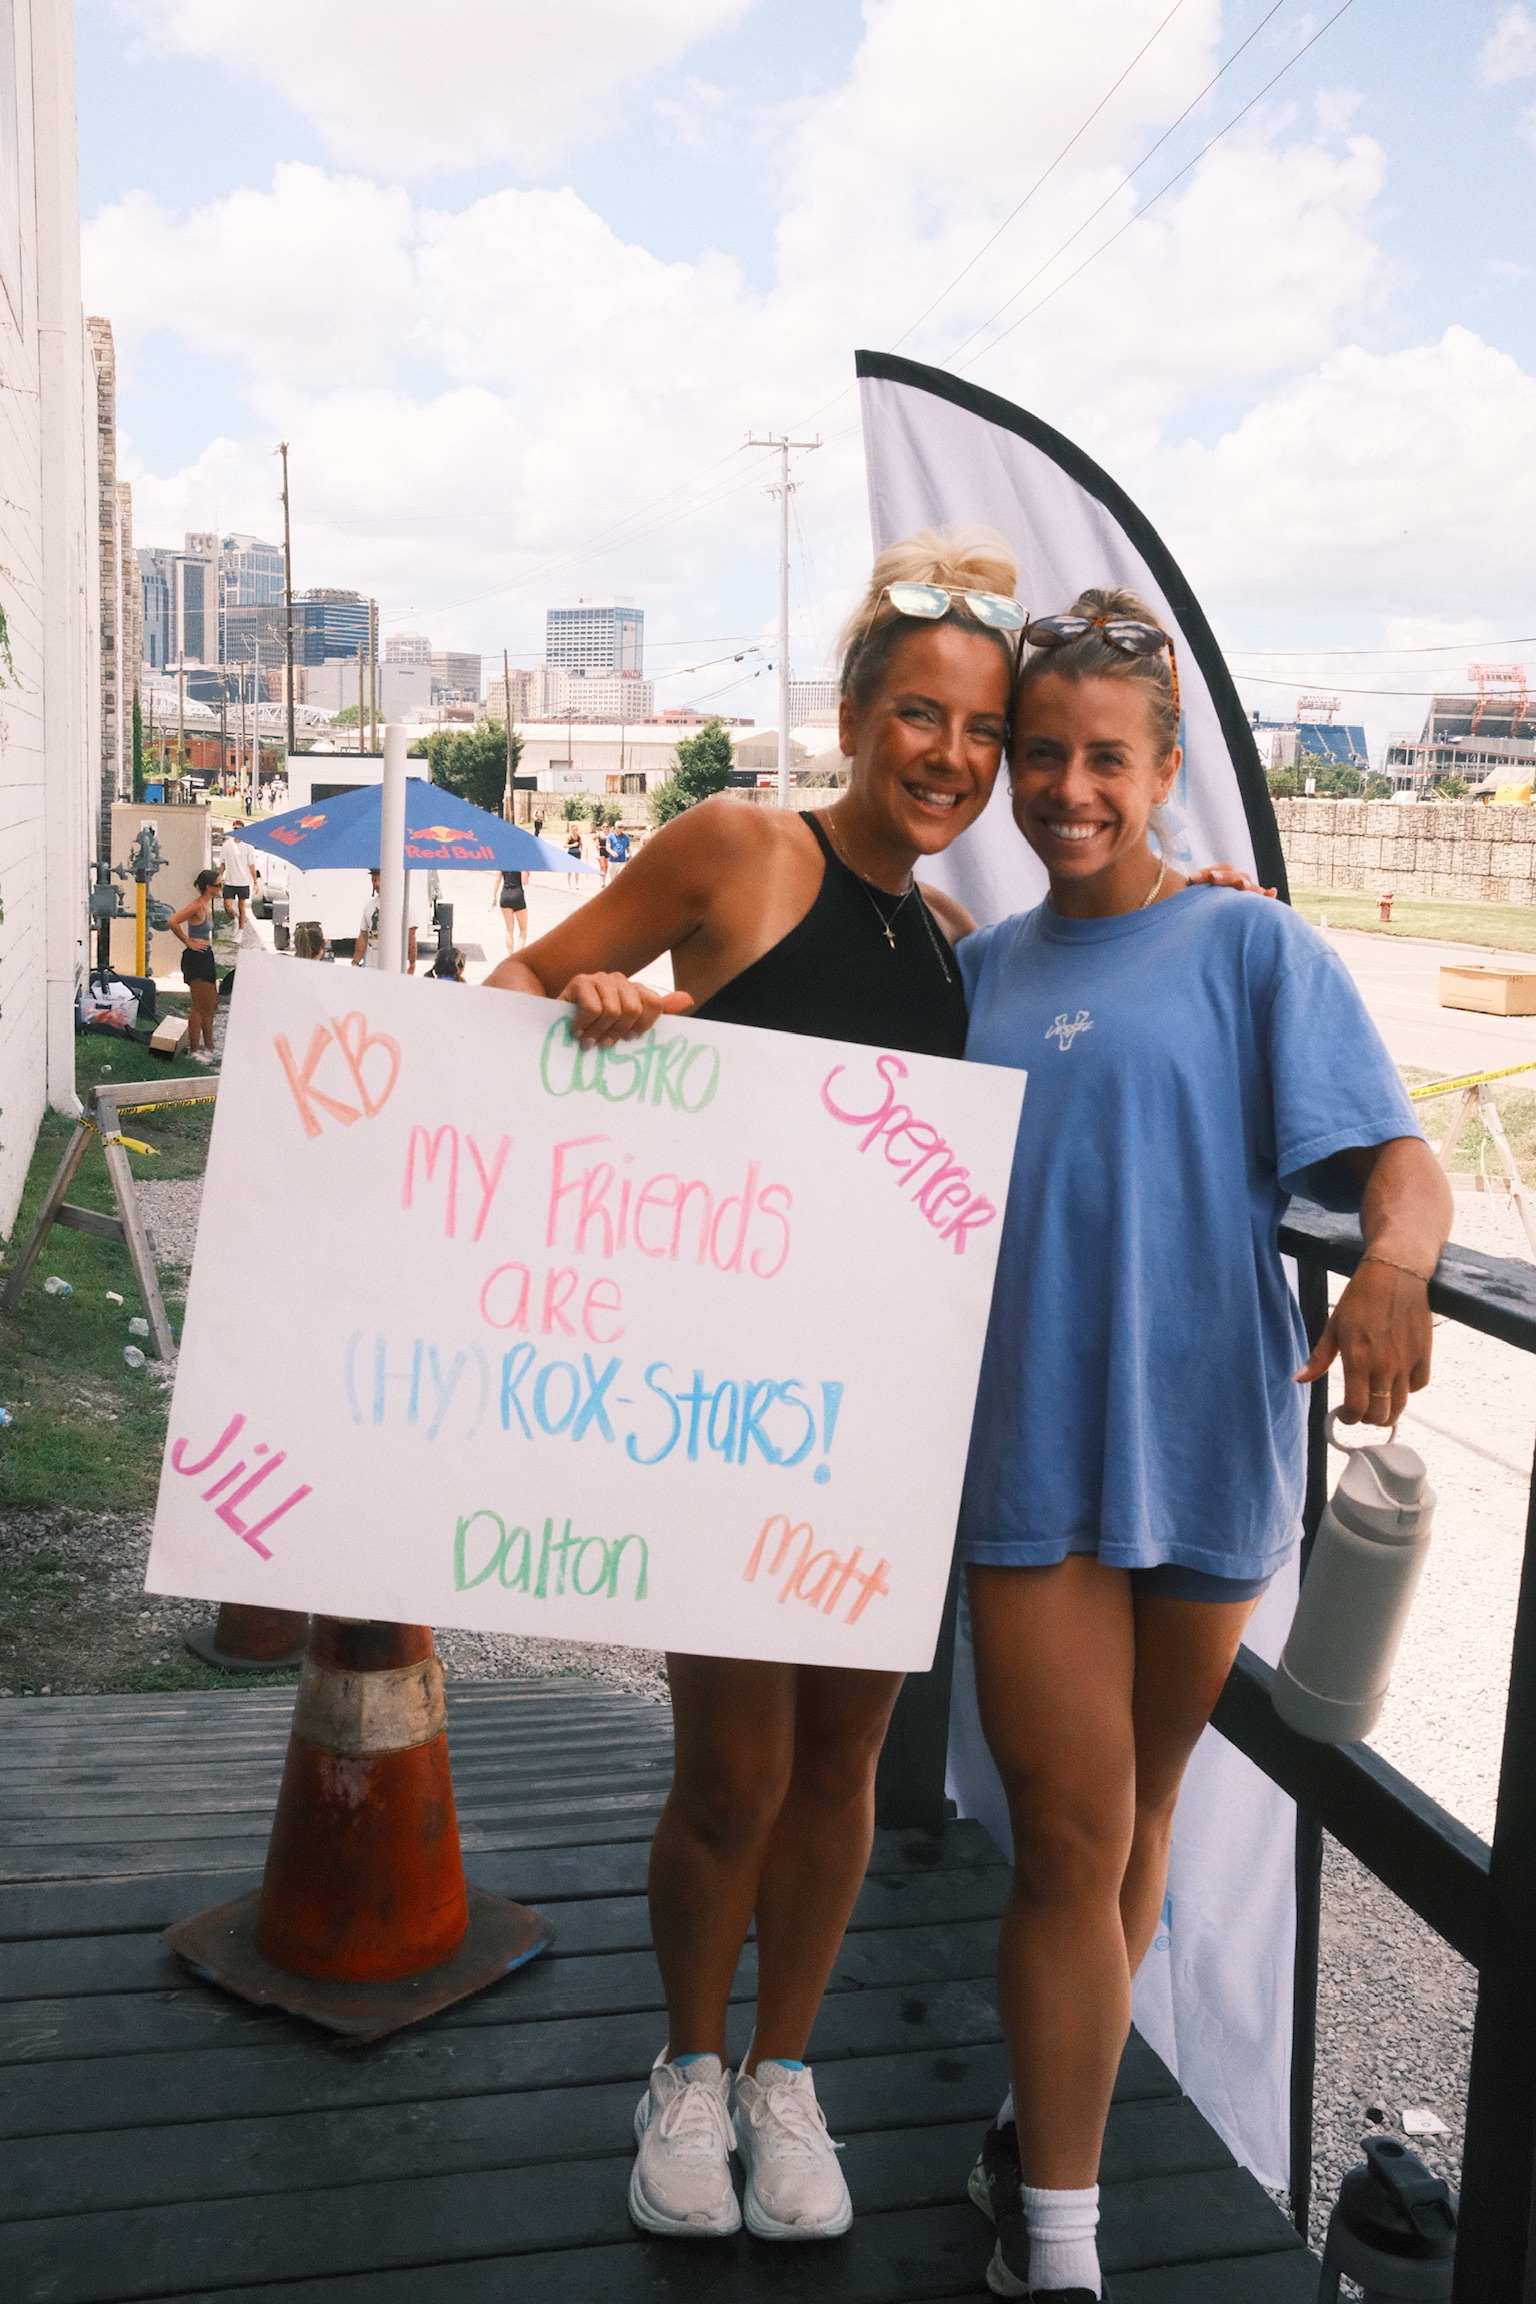 KB
Castro
Spencer
My Friends
are
(HY)ROX-Stars!
Jill
Dalton
Matt
Red Bull